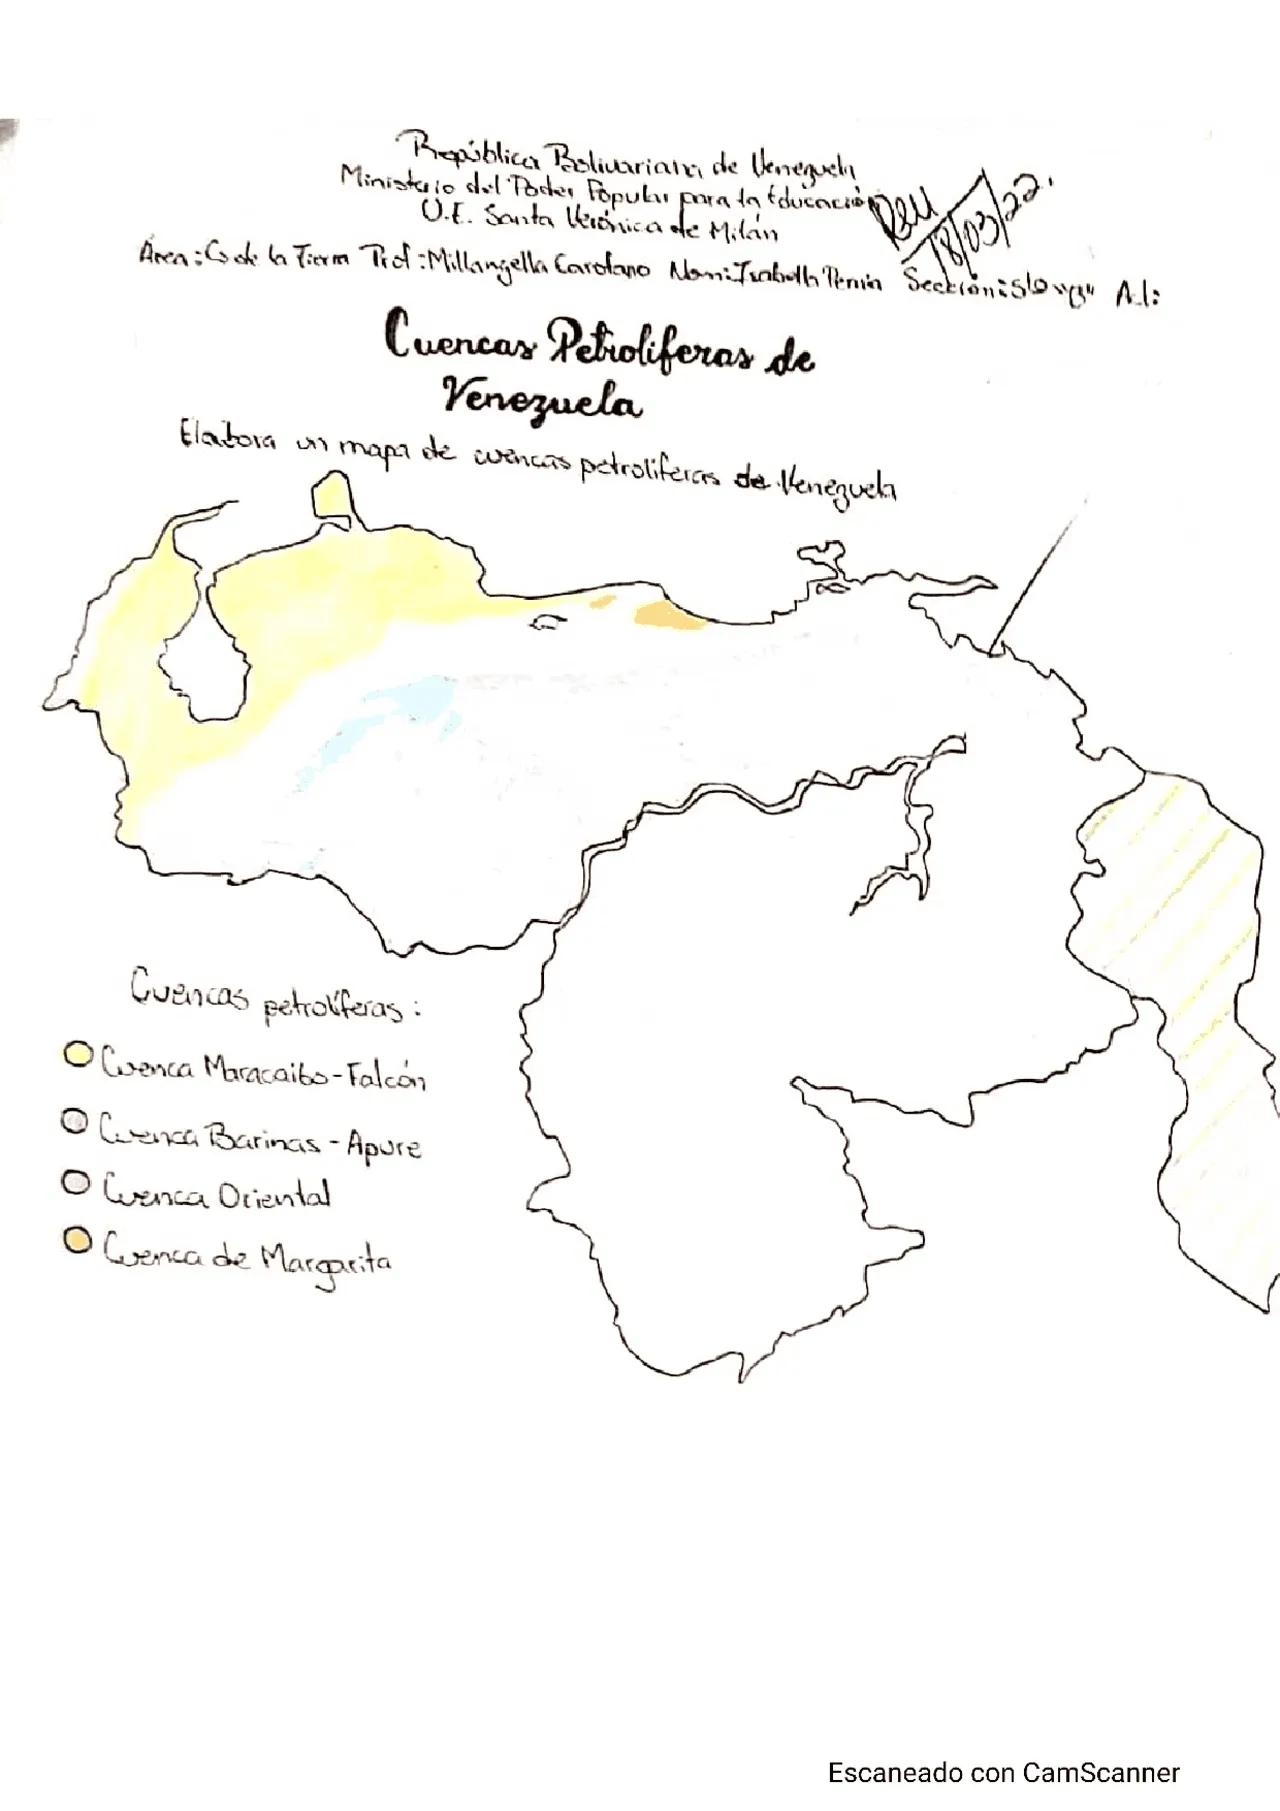 República Bolivariana de Venezuela
Ministerio del Poder Popular para la Educación
U.E. Santa Verónica de Milán
Área: Cs de la Tierra Prof: Millangella Carofano Nom: Isabella Sección: 5to "B"
18/03/22.
Cuencas Petroliferas de
Venezuela
Elabora un mapa de cuencas petroliferas de Venezuela
Cuencas petrolíferas:
Cuenca Maracaibo-Falcón
Cuenca Barinas-Apure
Cuenca Oriental
Cuenca de Margarita
Escaneado con CamScanner